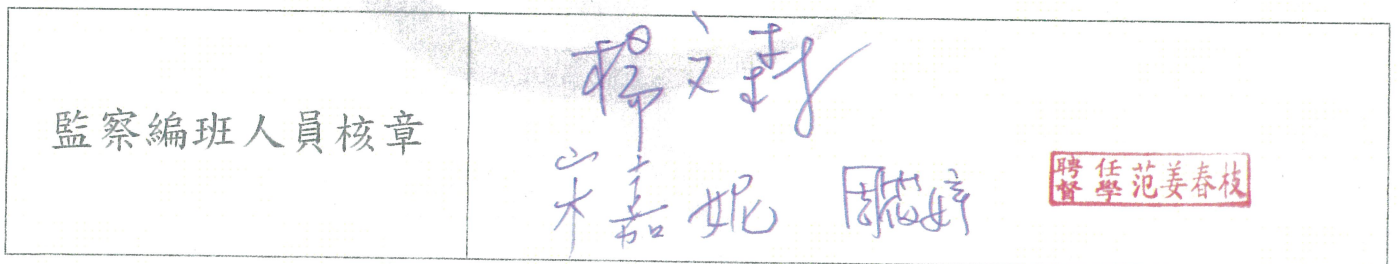 監察編班人員核章
楊文封
宋嘉妮 周筱婷
聘任督學 范姜春枝